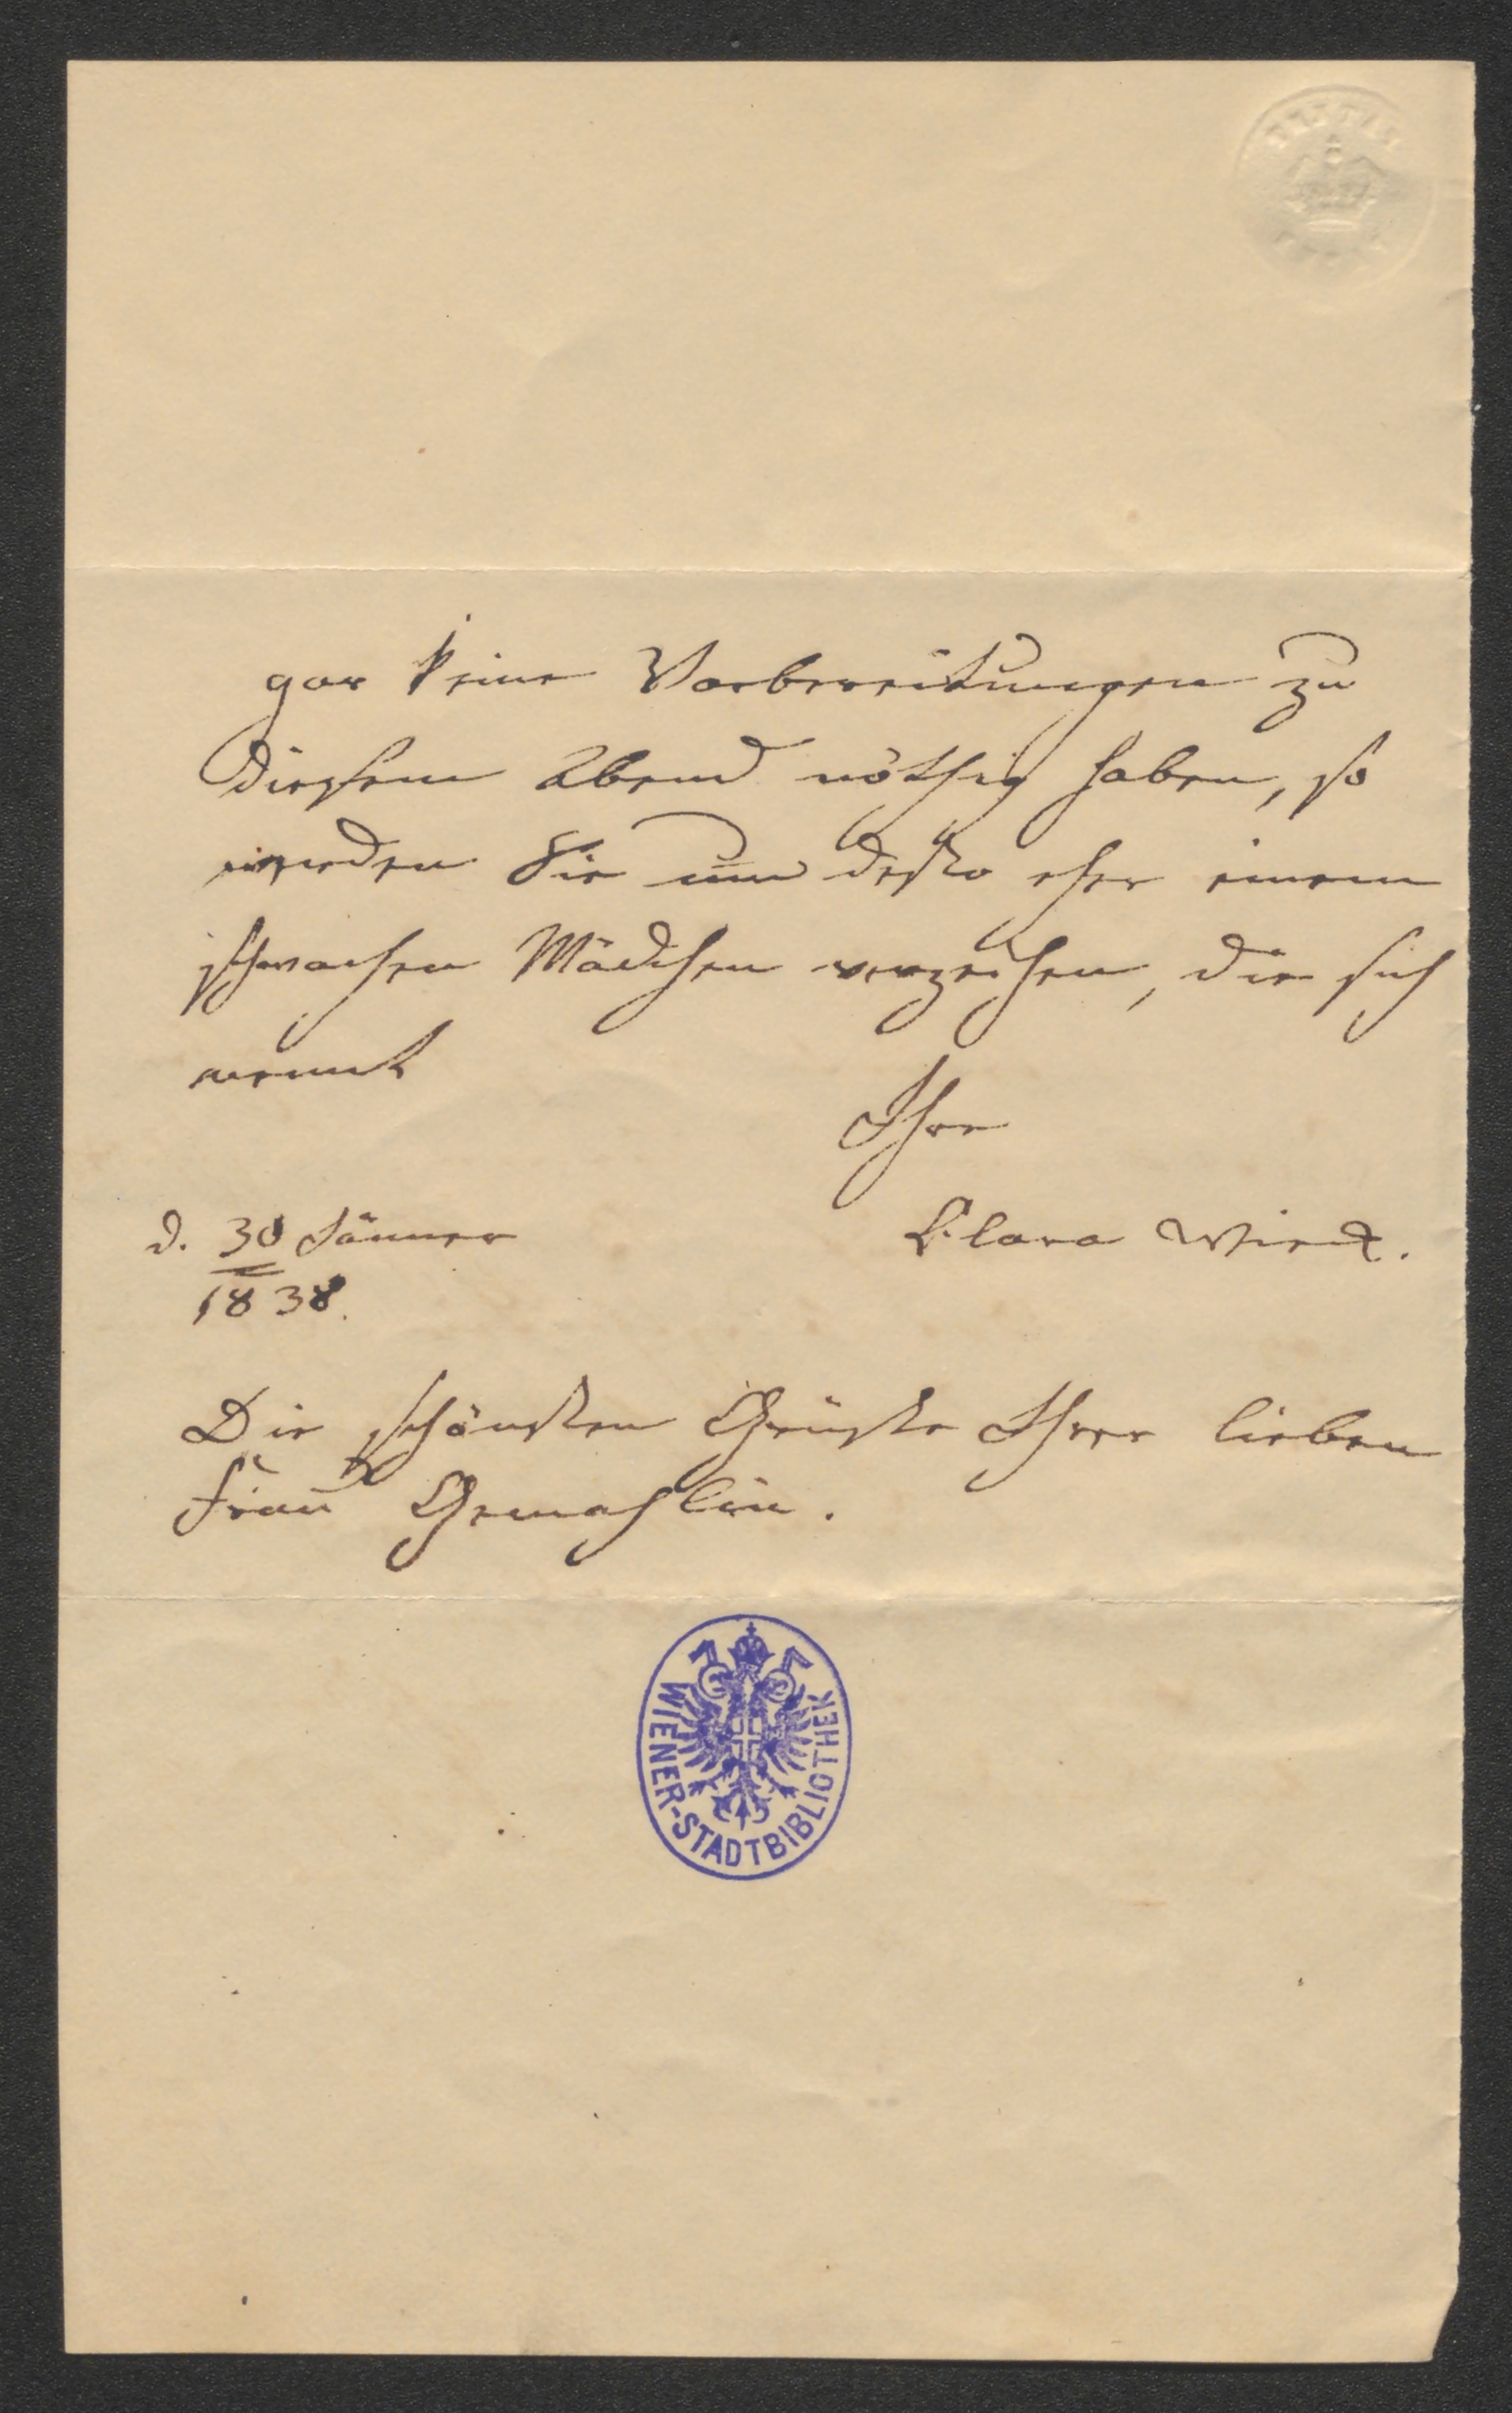 gar keine Vorbereitungen zu
diesem Abend nöthig haben, so
werden Sie um desto eher einem
schwachen Mädchen verzeihen, die sich
nennt
Ihre
d. 30 Jänner
Clara Wieck.
1838.
Die schönsten Grüße Ihrer lieben
Frau Gemahlin.
WIENER-STADTBIBLIOTHEK